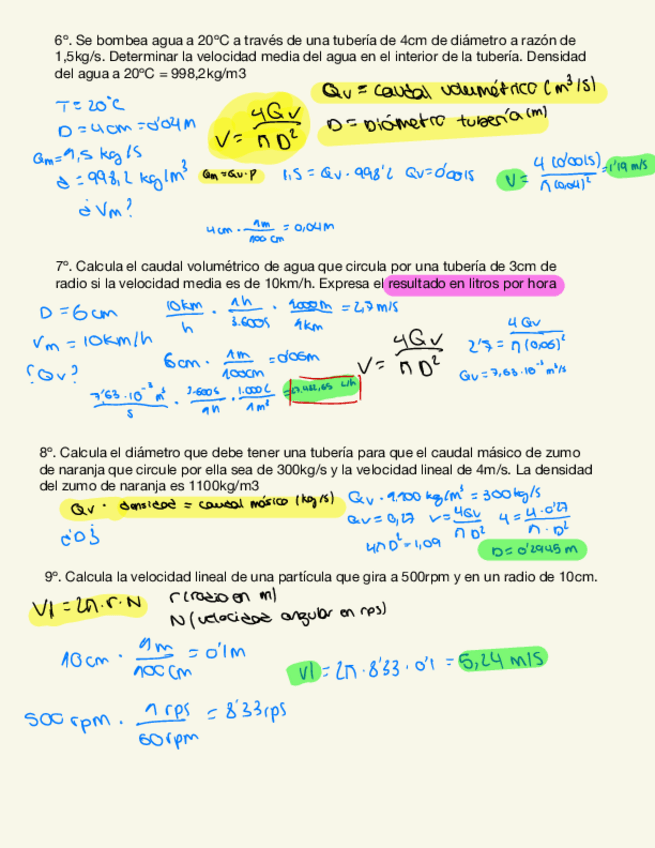 6º. Se bombea agua a 20ºC a través de una tubería de 4cm de diámetro a razón de
1,5kg/s. Determinar la velocidad media del agua en el interior de la tubería. Densidad
del agua a 20ºC = 998,2kg/m3
Qv = caudal volumétrico (m³/s)
D = Diámetro tubería (m)
T = 20°C
D = 4cm = 0'04m
Qm = 1,5 kg/s
d = 998,2 kg/m³
¿Vm?
V = 4Qv / π D²
Qm = Qv · P
1,5 = Qv · 998'2 Qv = 0'0015
V = 4 (0'0015) / π (0,04)² = 1'19 m/s
4cm · 1m / 100cm = 0,04m
7º. Calcula el caudal volumétrico de agua que circula por una tubería de 3cm de
radio si la velocidad media es de 10km/h. Expresa el resultado en litros por hora
D = 6cm
Vm = 10km/h
¿Qv?
10km / h · 1h / 3.600s · 1000m / 1km = 2,7 m/s
6cm · 1m / 100cm = 0'06m
V = 4Qv / π D²
2'7 = 4Qv / π (0,06)²
Qv = 7,63·10⁻³ m³/s
7'63·10⁻³ m³ / s · 3.600s / 1h · 1.000L / 1m³ =
8º. Calcula el diámetro que debe tener una tubería para que el caudal másico de zumo
de naranja que circule por ella sea de 300kg/s y la velocidad lineal de 4m/s. La densidad
del zumo de naranja es 1100kg/m3
Qv · densidad = caudal másico (kg/s)
¿D?
Qv · 1.100 kg/m³ = 300kg/s
Qv = 0,27 V = 4Qv / π D² 4 = 4·0'27 / π · D²
4πD² = 1,09
D = 0'2945 m
9º. Calcula la velocidad lineal de una partícula que gira a 500rpm y en un radio de 10cm.
Vl = 2π·r·N
r (radio en m)
N (velocidad angular en rps)
10cm · 1m / 100cm = 0'1m
Vl = 2π · 8'33 · 0'1 = 5,24 m/s
500 rpm · 1 rps / 60rpm = 8'33rps